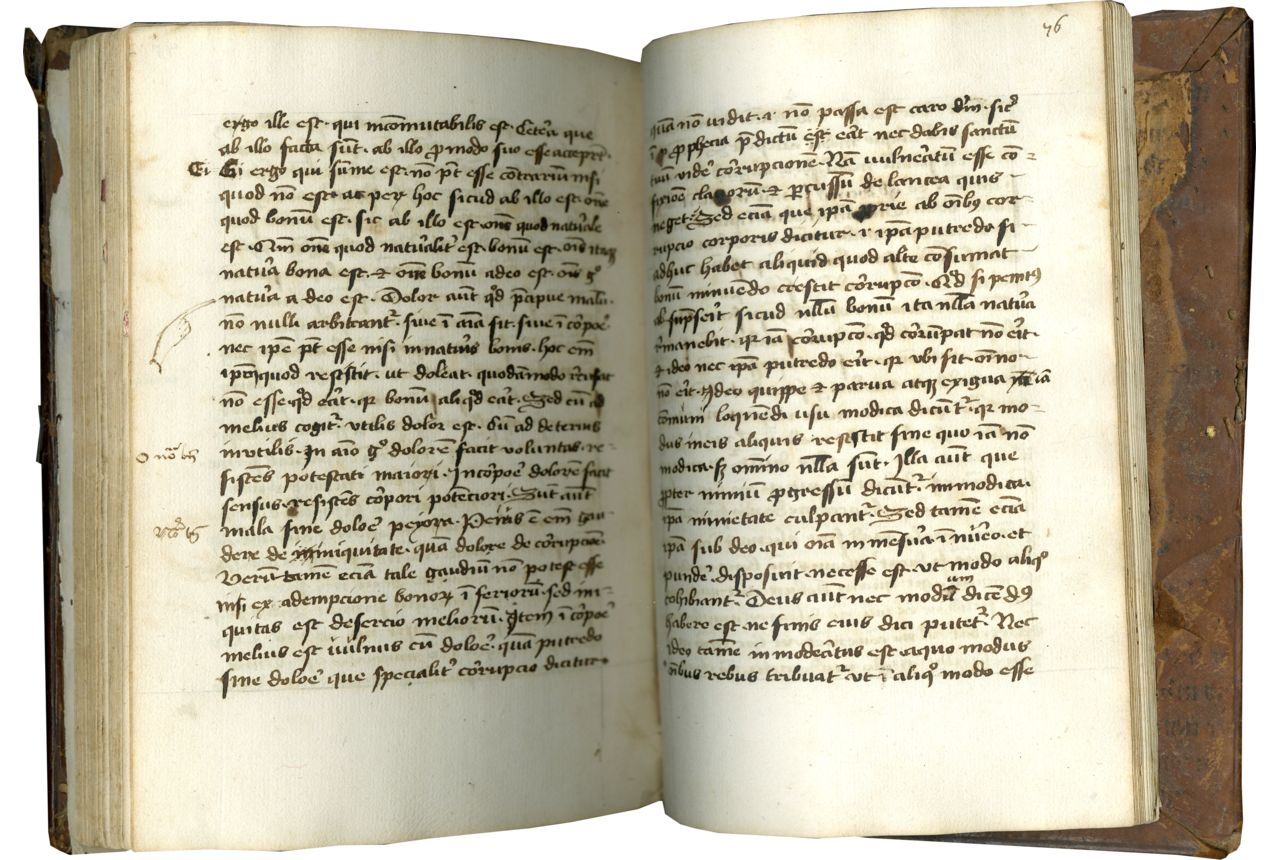 ergo ille est · qui incōmutabilis est · Cet̄a que
ab illo facta sūt · ab illo p̱ modo suo esse acceper̄t ·
Ei Ei ergo qui sūme est · nō pt̄ esse cōtrariū nisi
quod nō est · ac per hoc sicud ab illo est · om̄e
quod bonū est · sic ab illo est · om̄e quod natu'ale
est · Qm̄ om̄e quod natu'alit' est · bonū est · om̄s itaq
natu'a bona est · et om̄e bonū a deo est · om̄s gº
natu'a a deo est · Dolor aūt qd̄ p̄cipue malū ·
nō nulli arbitrant' · siue ī aīa sit · siue ī cōpoe'
nec ip̄e pt̄ esse nisi in natu'is bonis · hoc em̄
ip̄m quod resistit · ut doleat · quodāmodo
nō esse qd̄ erat · qr bonū aliqd̄ erat · Sed cū ad
melius cogit' · vtilis dolor est · Cū ad deterius
invtilis · In aīo gº dolorē facit voluntas · re-
sistēs potestati maiori · In cōpoe' dolorē facit
sensus · resistēs cōpori potēciori · Sunt aūt
mala sine doloe' peyora · Peius ē em̄ gau
dere de iniquitate · quā dolore de cōrupcōe
Verū tamē eciā tale gaudiū nō potest esse
nisi ex adempcione bonoꝝ ī feriorū · sed ini-
quitas est desercio meliorū · Item ī cōpoe'
melius est vulnus cū doloe' · quā putredo
sine doloe' que specialit' cōrupcio dicitur ·
76
quā nō vidit · et nō passa est caro dn̄i · sic'
ī p̱phecia p̄dictū est erat nec dabis sanctū
tuū vide' corrupcione · Nā vulneratū esse cō-
fixiōe clauorū · et percussū de lancea quis
neget · Sed eciā que ip̄a prie ab oīb9 cor-
rupcio corporis dicitur · et ip̄a putredo si -
adhuc habet aliquid quod alte cōsumat -
bonū minuendo crescit cōrupcō · Qd̄ si penit9
absūpserit sicud nullū bonū ita nulla natu'a
remanebit · qr iā cōrupcō · qd̄ corrumpat nō erit
et ideo nec ip̄a putredo erit · qr vbi sit om̄o -
nō erit · Ideo quippe et parua atq exigua iā
cōmuni loquendi vsu modica dicūt' · qr mo-
dus in eis aliquis resistit sine quo iā nō
modica · sꝫ om̄ino nulla sūt · Illa aūt que
p̱pter nimiū p̱gressū dicūt' immodica ·
ip̄a nimietate culpant' · Sed tamē eciā
ip̄a sub deo · qui oīa in mesu'a ī nūeo' · et
punde' disposuit necesse est · vt modo aliqº
cohibiant' · Deus aūt nec modū um dicend9
habere est · ne finis eius dici putet' · Nec
ideo tamē inmodeatus est a quo modus
oībus rebus tribuat' vt ī aliqº modo esse